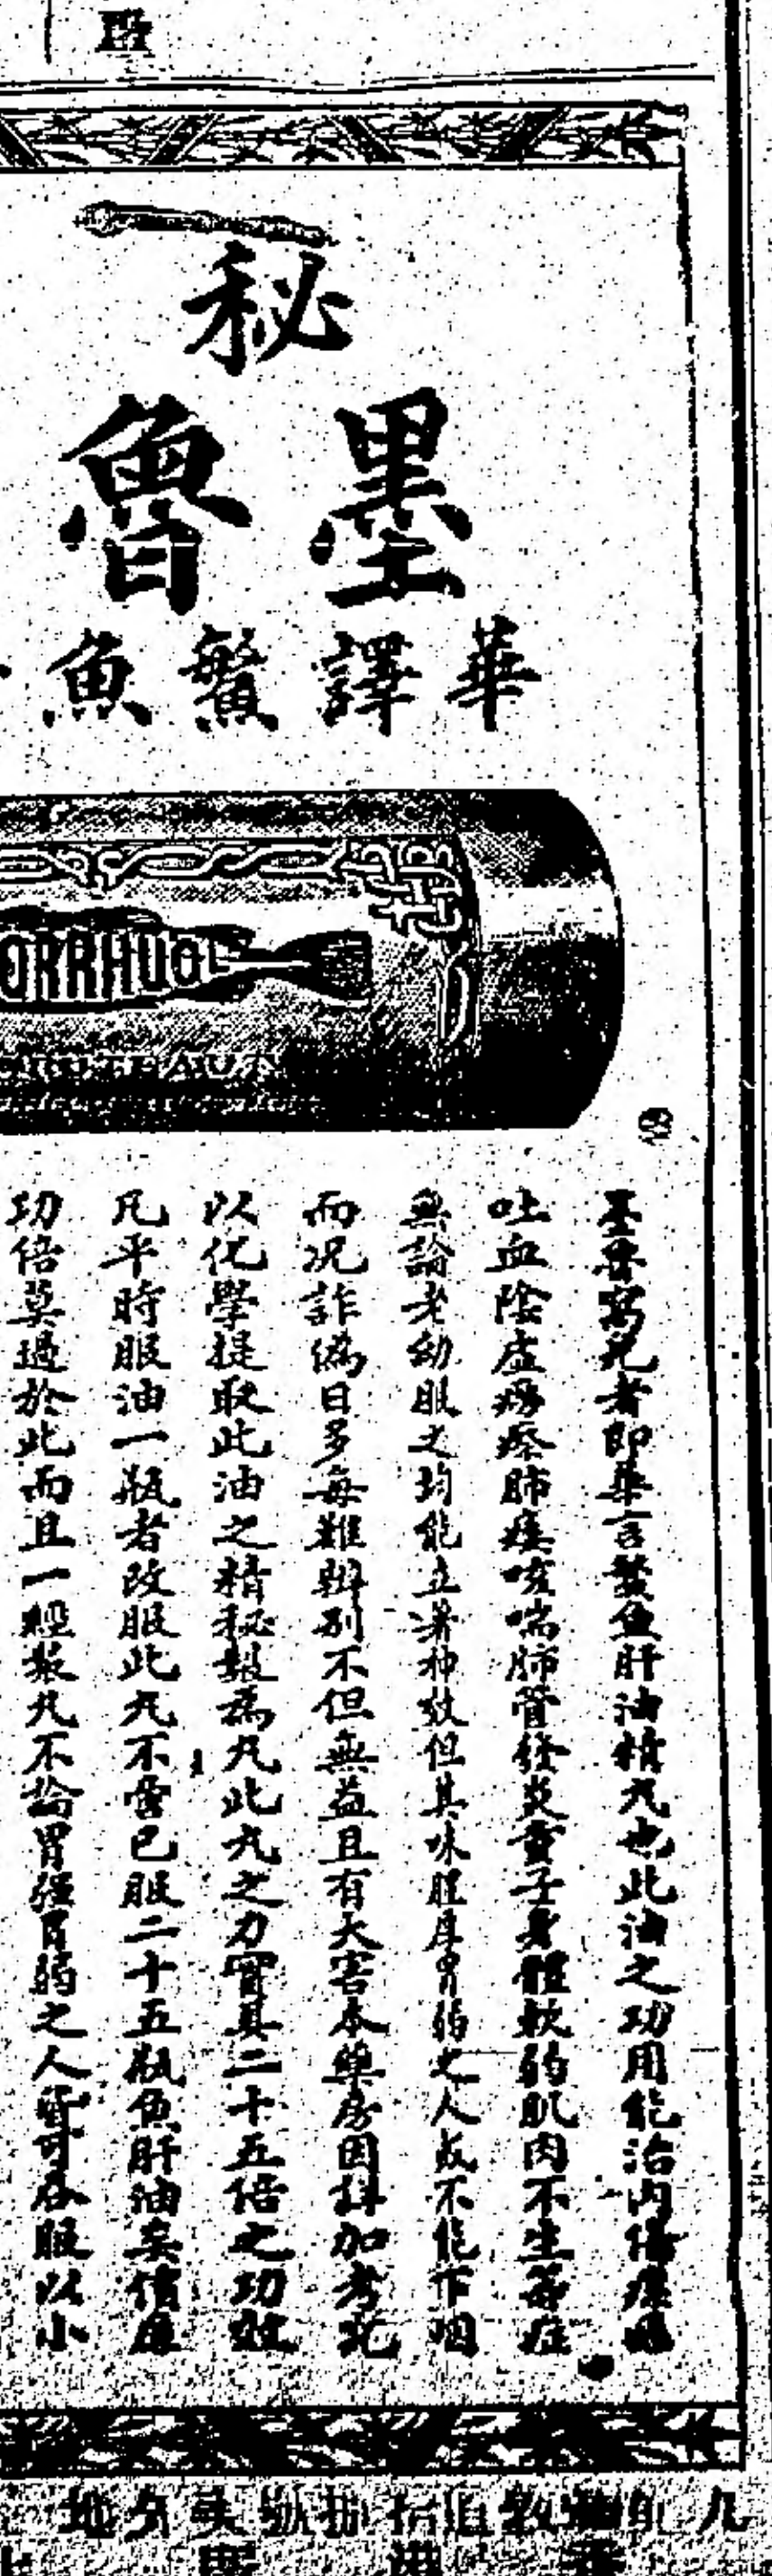 秘
墨魯
華譯鰵魚
ORRHUOL
墨魯寫尤者即華言鰵魚肝油精丸也此油之功用能治內傷
吐血陰虛癆瘵肺痿咳喘肺管發炎童子身體軟弱肌肉不生等症
無論老幼服之均能立著神效但其味腥厚胃弱之人或不能下咽
而况詐偽日多每難辨别不但無益且有大害本藥房因詳加考究
以化學提取此油之精秘製為丸此丸之力實具二十五倍之功效
凡平時服油一瓶者改服此丸不啻已服二十五瓶魚肝油矣價廉
功倍莫過於此而且一經製丸不論胃强胃弱之人皆可吞服以小